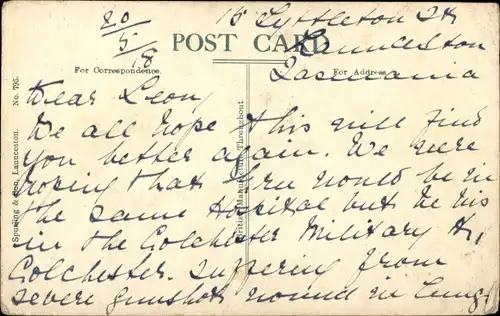 20/5/18
15 Lyttleton St
POST CARD
Launceston
Tasmania
For Correspondence.
For Address.
Dear Leon,
We all hope this will find
you better again. We were
hoping that you would be in
the same Hospital but he is
in the Colchester Military H,
Colchester. suffering from
severe gunshot wound in lung.
Spurling & Son, Launceston. No. 795.
British Manufacture Throughout.